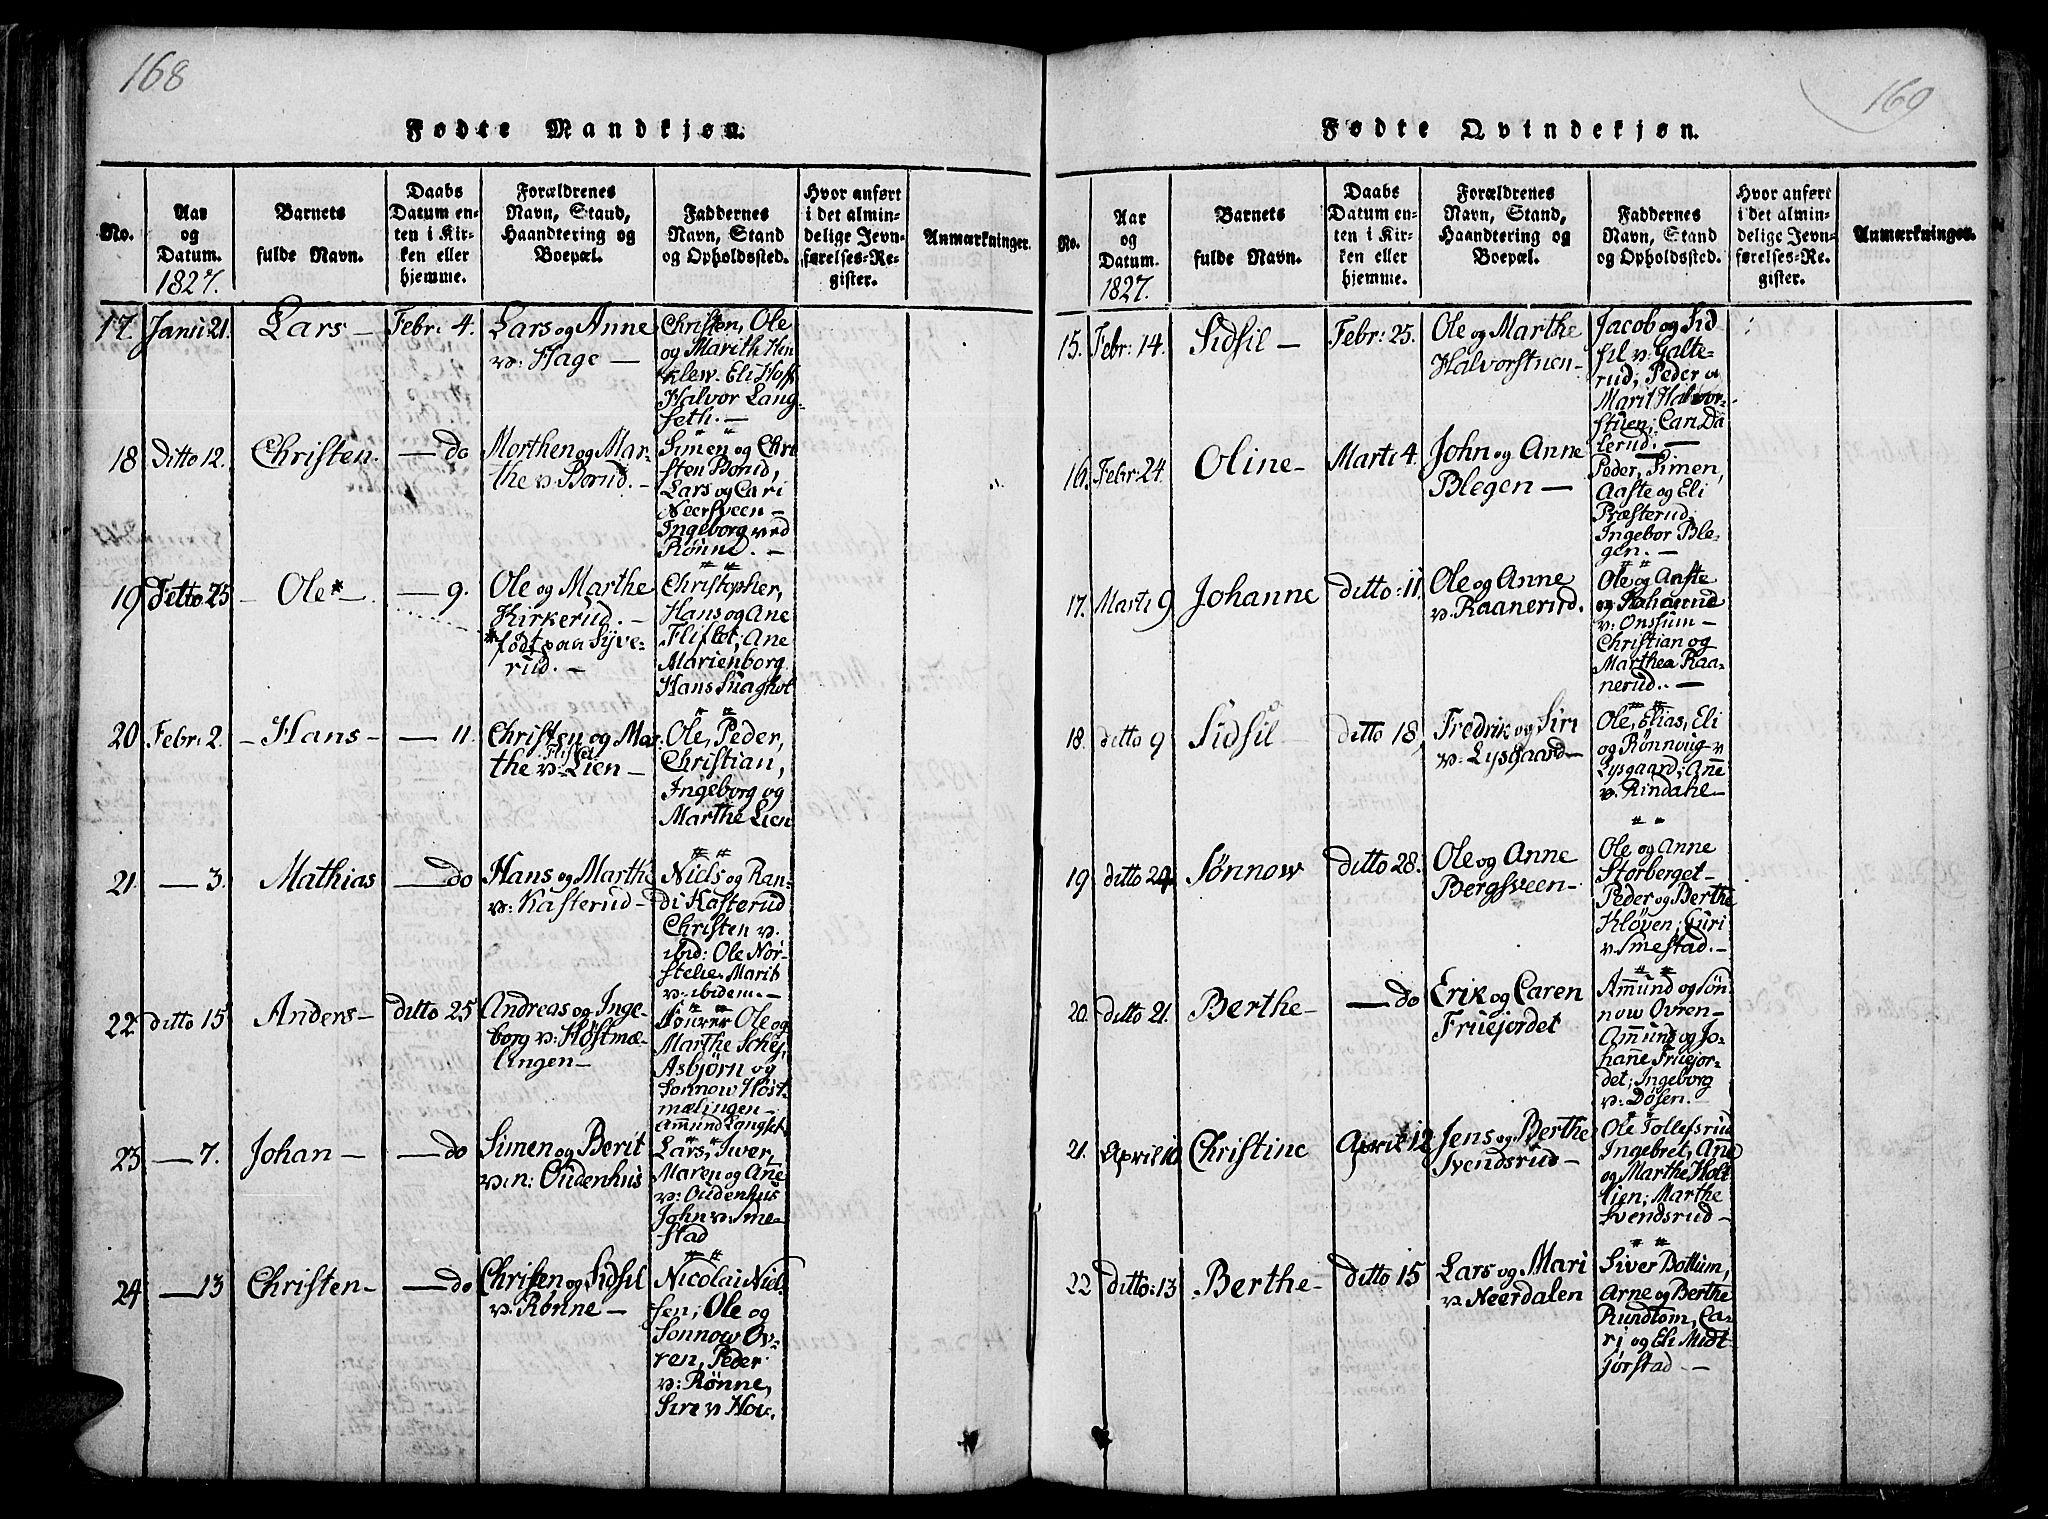 168
Fødte Mandkjøn.
No.
Aar
og
Datum.
1827.
Barnets
fulde Navn.
Daabs
Datum en-
ten i Kir-
ken eller
hjemme.
Forældrenes
Navn, Stand,
Haandtering og
Boepæl.
Faddernes
Navn, Stand
og Opholdssted.
Hvor anført
i det almin-
delige Jevn-
førelses-Re-
gister.
Anmærkninger.
17. Janu: 21. Lars — Febr: 4.
Lars og Anne
v: Hage —
Christen, Ole
og Marith Hen
klev. Eli Hoff
Halvor Lang-
seth. —
18 Ditto 12. Christen. — do
Morthen og Mar-
the v: Borud. —
Simen og Chri
sten Borud,
Lars og Cari
Neersveen —
Ingeborg ved
Rønne. —
19 Ditto 25 — Ole* — — 9.
Ole og Marthe
Kirkerud. —
* født paa Syve-
rud. —
Christopher,
Hans og Ane
Fliflet, Ane
Marienborg.
Hans
20 Febr: 2. — Hans — — 11.
Christen og Mar-
the v: Lien —
Ole, Peder,
Christian,
Ingeborg og
Marthe Lien
21. — 3. Mathias — do
Hans og Marthe
v: Kasterud —
Niels og Ran-
di Kasterud
Christen v.
ibid: Ole Nor-
stelie. Marit
v: ibidem. —
22. ditto 15. Anders — ditto 25
Andreas og Inge-
borg v: Høstmæ-
lingen —
Ole og
Marthe Schej,
Asbjørn og
Sønnow Høst
mælingen —
Ammund Langset
23 — 7. Johan — — do
Simen og Berit
v: n: Oudenhus
Lars, Iwer,
Maren og Ane
v: Oudenhus
John v: Sme-
stad
24 — 13 Christen — — do
Christen og Sidsil
v: Rønne —
Nicolai Niel-
sen, Ole og
Sønnow Ov-
ren, Peder
v: Rønne,
Siri v Hov.
169
Fødte Qvindekjøn.
No.
Aar
og
Datum.
1827.
Barnets
fulde Navn.
Daabs
Datum en-
ten i Kir-
ken eller
hjemme.
Forældrenes
Navn, Stand,
Haandtering og
Boepæl.
Faddernes
Navn, Stand
og Opholdssted.
Hvor anført
i det almin-
delige Jevn-
førelses-Re-
gister.
Anmærkninger.
15. Febr: 14. Sidsil — Febr: 25.
Ole og Marthe
Halvorstuen —
Jacob og Sid
sil v: Galte-
rud, Peder o
Marit Halvor-
stuen; Cari Da
lerud. —
16. Febr: 24. Oline — Marti 4.
John og Anne
Blegen —
Peder, Simen,
Aaste og Eli
Præsterud;
Ingebor Ble-
gen. —
17. Marti 9 Johanne ditto: 11.
Ole og Anne
v: Raanerud.
Ole og Aaste
v: Onsum —
Christian og
Marthea Raa-
nerud. —
18. ditto 9 Sidsil — ditto 18
Fredrik og Siri
v: Lysgaard —
Ole, Elias, Eli
og Rønnoug v
Lysgaard; Ane
v: Rindahe —
19 ditto 24. Sønnow ditto 28.
Ole og Anne
Bergsveen —
Ole og Anne
Storberget —
Peder og Berthe
Kløven, Guri
v: Smestad. —
20. ditto 21. Berthe — — do
Erik og Caren
Fruejordet
Amund og Søn-
now Ovren —
Ammund og Jo-
hanne Fruejor-
det; Ingeborg
v: Døsen. —
21. April 10 Christine April 12
Jens og Berthe
Svendsrud —
Ole Tollefsrud
Ingebret, Ane
og Marthe Holt
lien; Marthe
Svendsrud —
22 ditto: 13 Berthe — ditto 15
Lars og Mari
v: Neerdalen
Siver Bottum,
Arne og Berthe
Rundtom, Ca-
ri og Eli Midt-
jorstad —